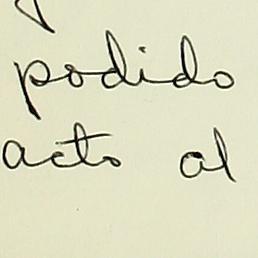 podido
acto al